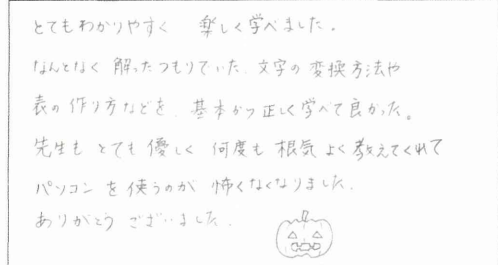 とてもわかりやすく 楽しく学べました。
なんとなく 解ったつもりでいた、文字の変換方法や
表の作り方などを、基本から正しく学べて良かった。
先生も とても 優しく 何度も 根気よく教えてくれて
パソコンを使うのが 怖くなくなりました。
ありがとう ございました。